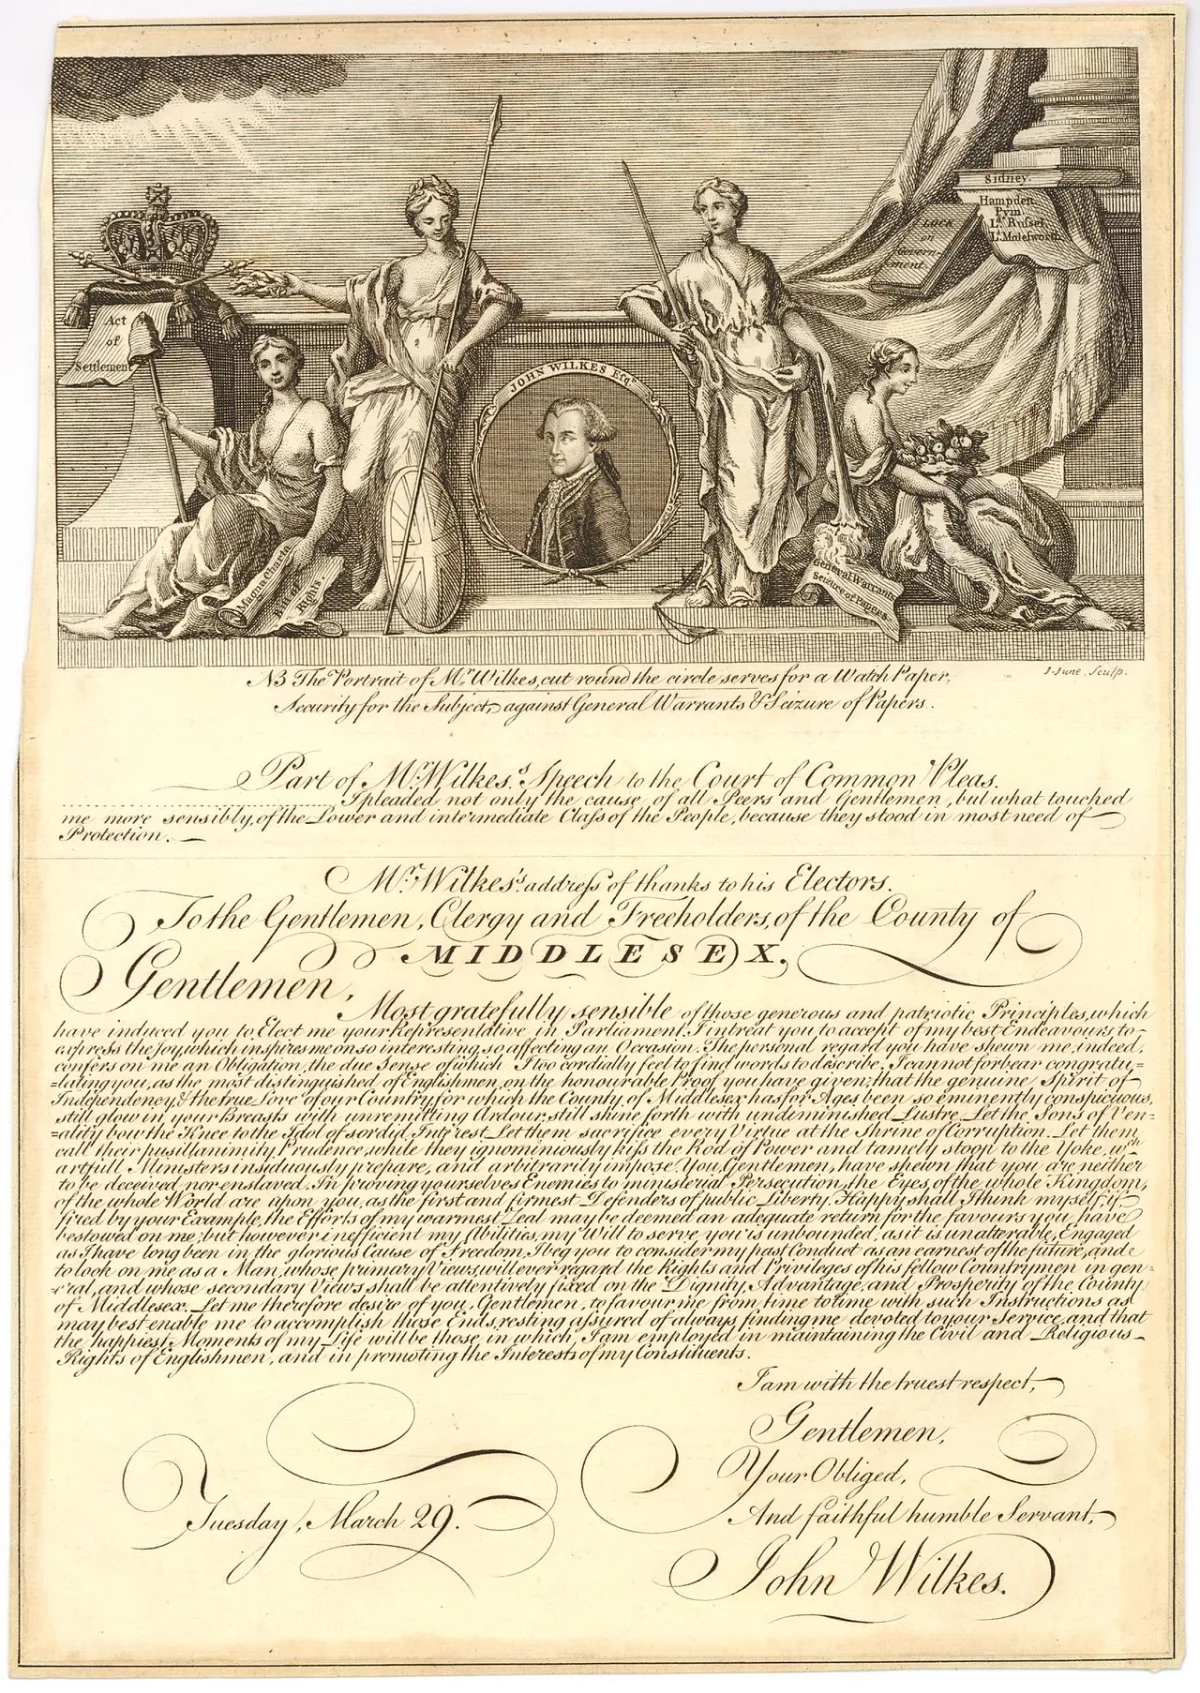 Act
of
Settlement
Magna Charta
Bill of
Rights.
JOHN WILKES Esqr.
Sidney.
Hampden
Pym
Ld. Russel
Ld. Molesworth
LOCK
on
Government
General Warrants
Seizure of Papers.
NB The Portrait of Mr. Wilkes, cut round the circle serves for a Watch Paper.
J. June. Sculp.
Security for the Subject, against General Warrants & Seizure of Papers.
Part of Mr. Wilkes's Speech to the Court of Common Pleas.
I pleaded not only the cause of all Peers and Gentlemen, but what touched
me more sensibly, of the Lower and intermediate Class of the People, because they stood in most need of
Protection.
Mr. Wilkes's address of thanks to his Electors.
To the Gentlemen, Clergy and Freeholders, of the County of
MIDDLESEX.
Gentlemen,
Most gratefully sensible of those generous and patriotic Principles, which
have induced you to Elect me your Representative in Parliament, I intreat you to accept of my best Endeavours to
express the Joy, which inspires me on so interesting, so affecting an Occasion. The personal regard you have shewn me, indeed,
confers on me an Obligation, the due Sense of which I too cordially feel to find words to describe. I cannot forbear congratu=
=lating you, as the most distinguished of Englishmen, on the honourable Proof you have given; that the genuine Spirit of
Independency, & the true Love of our Country, for which the County of Middlesex has for Ages been so eminently conspicuous,
still glow in your Breasts with unremitting Ardour, still shine forth with undiminished Lustre. Let the Sons of Ven=
=ality bow the Knee to the Idol of sordid Interest. Let them sacrifice every Virtue at the Shrine of Corruption. Let them
call their pusillanimity Prudence, while they ignominiously kiss the Rod of Power and tamely stoop to the Yoke, wch.
artfull Ministers insiduously prepare, and arbitrarily impose. You, Gentlemen, have shewn that you are neither
to be deceived, nor enslaved. In proving yourselves Enemies to ministerial Persecution, the Eyes of the whole Kingdom,
of the whole World are upon you, as the first and firmest Defenders of public Liberty. Happy shall I think myself, if
fired by your Example, the Efforts of my warmest Zeal may be deemed an adequate return for the favours you have
bestowed on me; but however inefficient my Abilities, my Will to serve you is unbounded, as it is unalterable. Engaged
as I have long been in the glorious Cause of Freedom, I beg you to consider my past Conduct as an earnest of the future, and
to look on me as a Man, whose primary Views will ever regard the Rights and Privileges of his fellow Countrymen in gen=
=eral, and whose secondary Views shall be attentively fixed on the Dignity, Advantage, and Prosperity of the County
of Middlesex. Let me therefore desire of you, Gentlemen, to favour me from time to time with such Instructions as
may best enable me to accomplish those Ends, resting assured of always finding me devoted to your Service, and that
the happiest Moments of my Life will be those, in which, I am employed in maintaining the Civil and Religious
Rights of Englishmen, and in promoting the Interests of my Constituents.
I am with the truest respect,
Gentlemen,
Your Obliged,
And faithful humble Servant,
Tuesday, March 29.
John Wilkes.